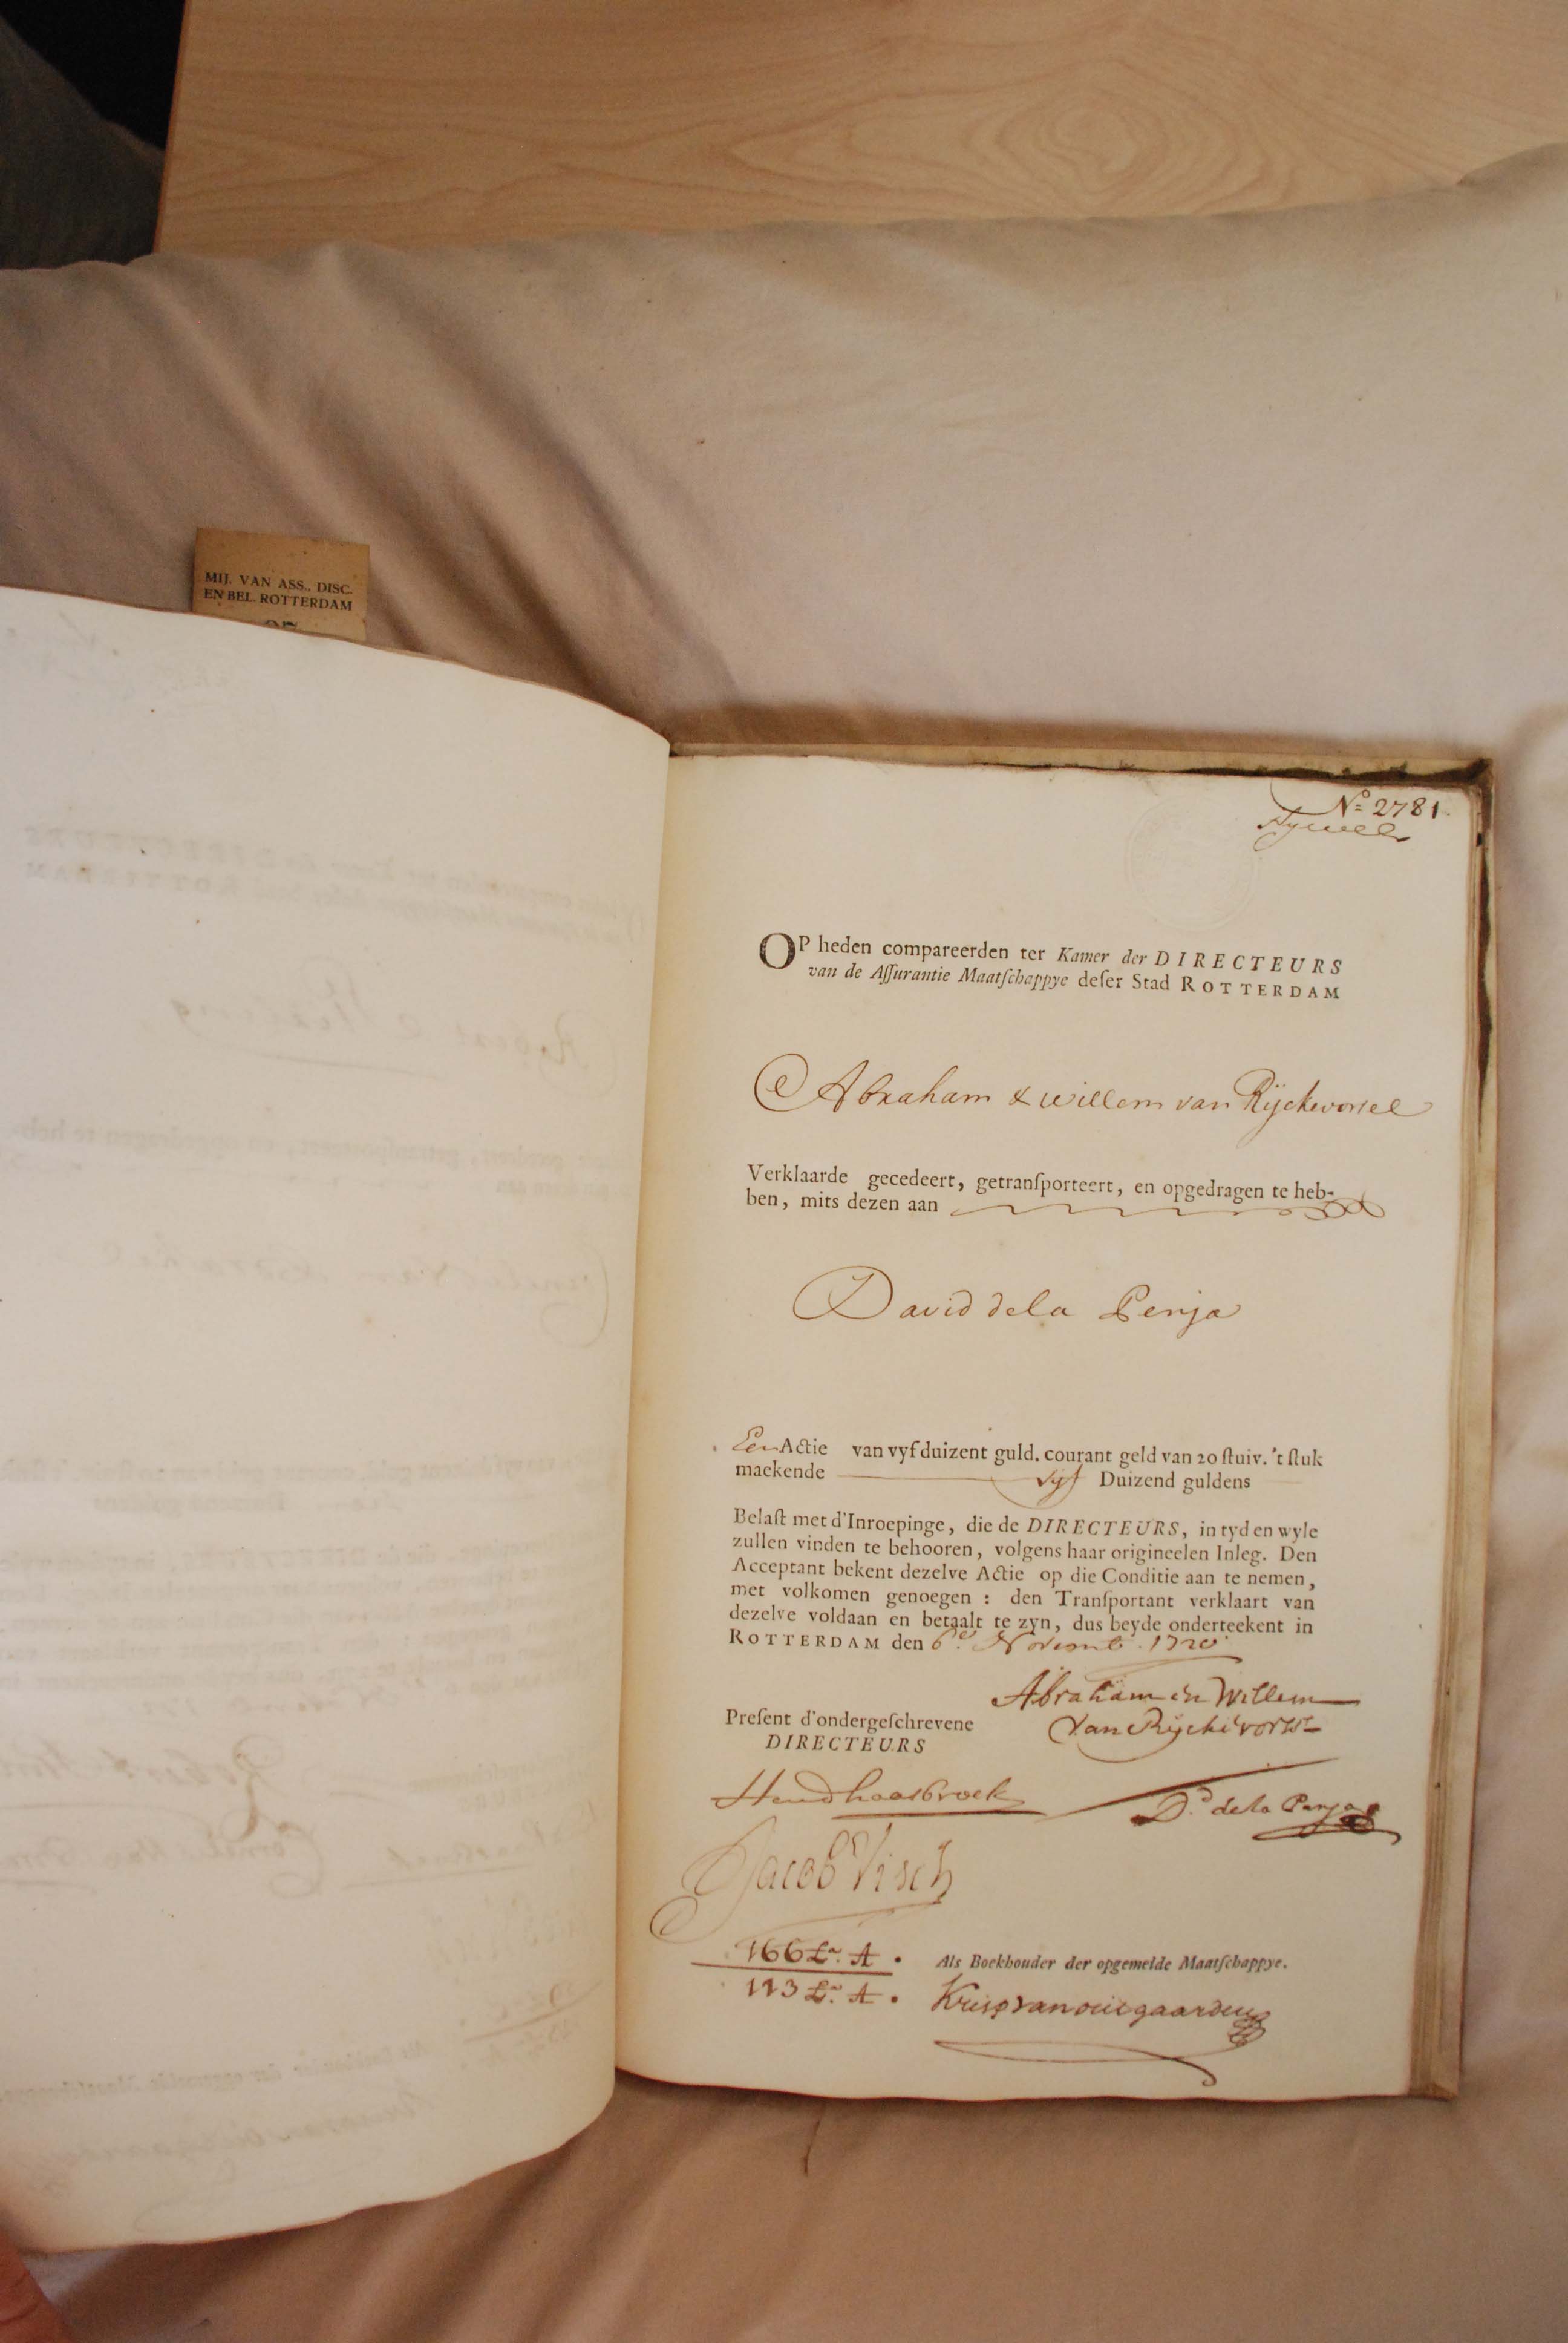 MIJ. VAN ASS., DISC.
EN BEL. ROTTERDAM
No 2781
OP heden compareerden ter Kamer der DIRECTEURS
van de Aſſurantie Maatſchappye deſer Stad ROTTERDAM
Abraham & willem van Rijckevorsel
Verklaarde gecedeert, getranſporteert, en opgedragen te heb-
ben, mits dezen aan
David dela Penja
Een Actie van vyf duizent guld. courant geld van 20 ſtuiv. 't ſtuk
maekende vijf Duizend guldens
Belaſt met d'Inroepinge, die de DIRECTEURS, in tyd en wyle
zullen vinden te behooren, volgens haar origineelen Inleg. Den
Acceptant bekent dezelve Actie op die Conditie aan te nemen,
met volkomen genoegen : den Tranſportant verklaart van
dezelve voldaan en betaalt te zyn, dus beyde onderteekent in
ROTTERDAM den 6e Novemb. 1720
Abraham en Willem
Preſent d'ondergeſchrevene
van Rijckevorsel
DIRECTEURS
Hend haasbroek
D.d dela Penja
Jacob Visch
166 Lr. A.
Als Boekhouder der opgemelde Maatſchappye.
113 Lr. A.